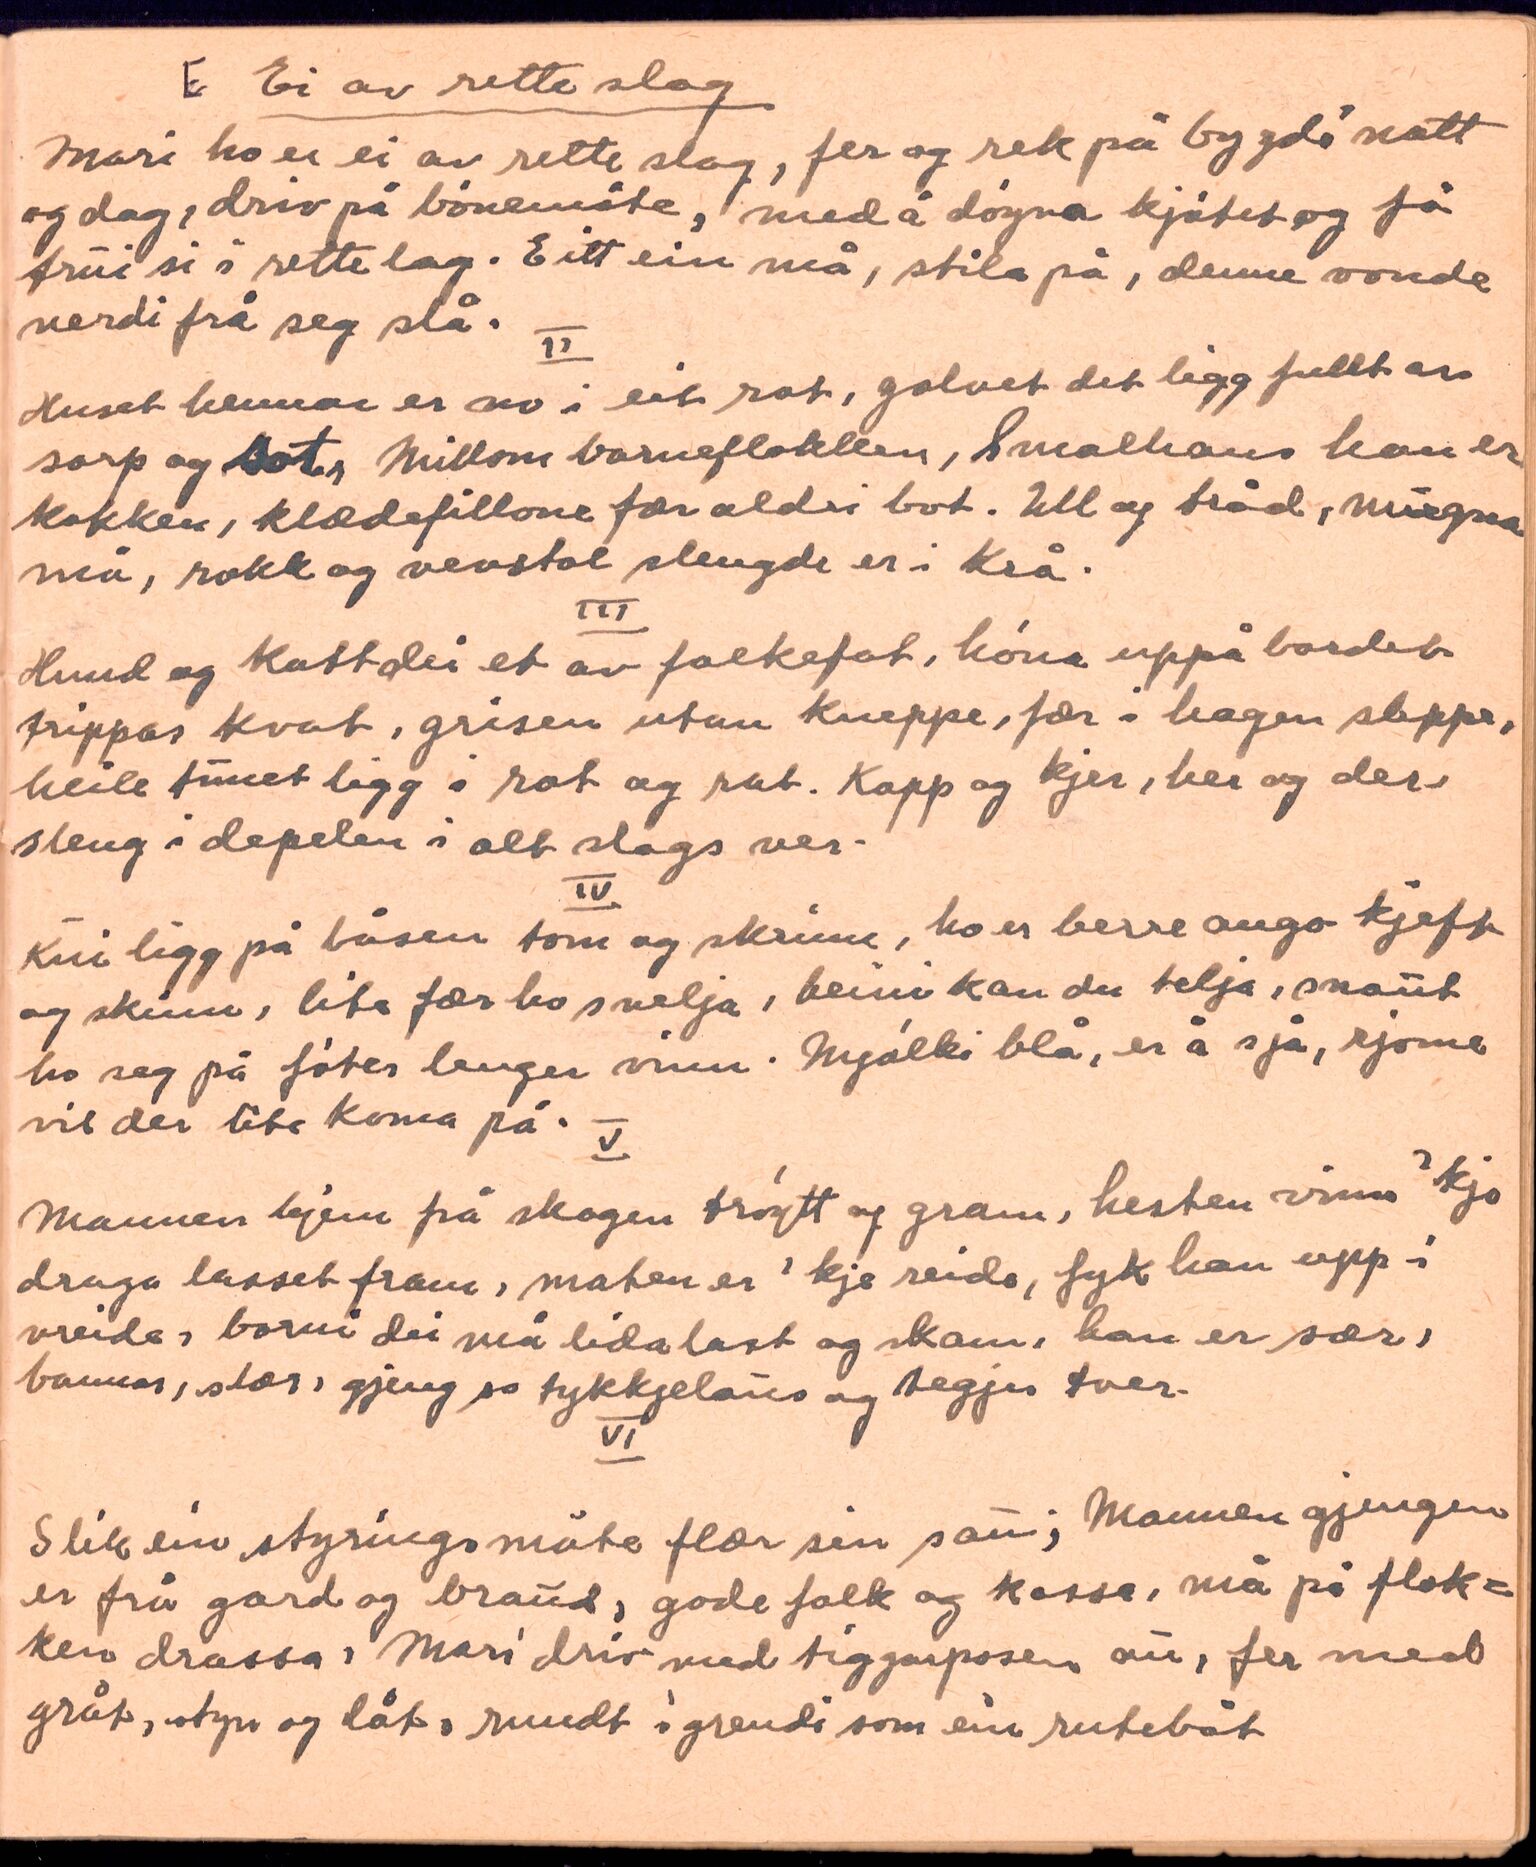 E Ei av rette slag
Mari ho er ei av rette slag, fer og rek på bygdi natt
og dag, driv på bónemóte, med å dógva kjótet, og få
trui si i rette lag. Eitt ein må, stila på, denne vonde
verdi frå seg slå.
II
Huset hennar er no i eit rot, golvet det ligg fullt av
sorp og sot, Millom barneflokken, Smalhans han er
kokken, klædefillone fær aldri bot. Ull og tråd, mugna
må, rokk og vevstol slengde er i krå.
III
Hund og katt dei et av folkefat, hóna uppå bordet
trippar kvat, grisen utan kneppe, fær i hagen sleppe,
heile tunet ligg i rot og rat. Kopp og kjer, her og der,
sleng i depelen i alt slags ver.
IV
Kui ligg på båsen tom og skrinn, ho er berre augo kjeft
og skinn, lite fær ho svelja, beini kan du telja, snaut
ho seg på fóter lenger vinn. Mjólki blå, er å sjå, rjome
vil der lite koma på.
V
Mannen hjem frå skogen tróytt og gram, hesten vinn 'kje
draga lasset fram, maten er 'kje reide, fyk han upp i
vreide, borni dei må lida last og skam, han er sær,
bannar, slær, gjeng so tykkjelaus og tegjer tver.
VI
Slik ein styringsmåte flær sin sau; Mannen gjengen
er frå gard og braud, gode folk og kassa, må på flok=
ken drassa, Mari driv med tiggarposen au, fer med
gråt, styn og låt, rundt i grendi som ein rutebåt